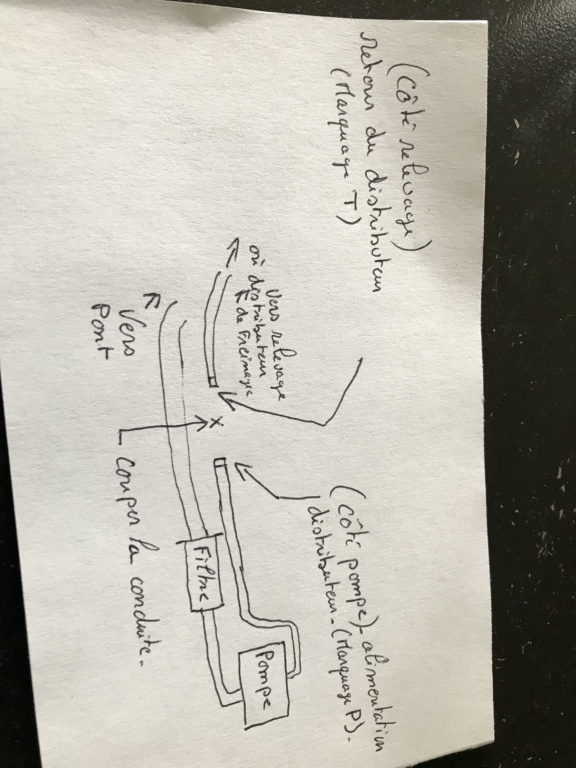 (côté relevage)
retour du distributeur
(Marquage T)
(côté pompe) - alimentation
distributeur - (Marquage P).
Vers relevage
où distributeur
de Freinage
Vers
Pont
X
couper la conduite.
Filtre
Pompe